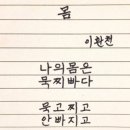 몸
이환천
나의 몸은
묵찌빠다
묵고 찌고
안빠지고